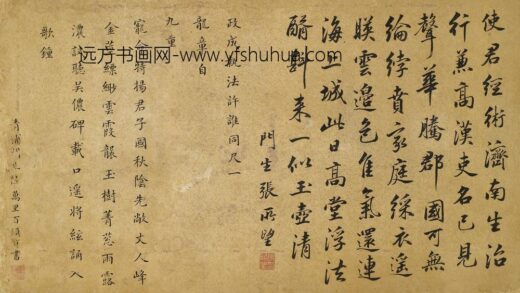 使君經術濟南生治
行兼高漢吏名已見
聲華騰郡國可無
綸綍賁家庭綵衣遙
映雲邉色隹氣還連
海上城此日高堂浮法
醑斟来一似玉壺清
門生張所望
政成執法許誰同尺一
龍章自
九重
寵命將揚君子國秋陰先敞丈人峰
金莖綠細雲霞餙玉樹菁葱雨露
濃試聽吳儂碑載口遥將絃誦入
歌鍾
青浦
書
远方书画网--www.yfshuhua.com